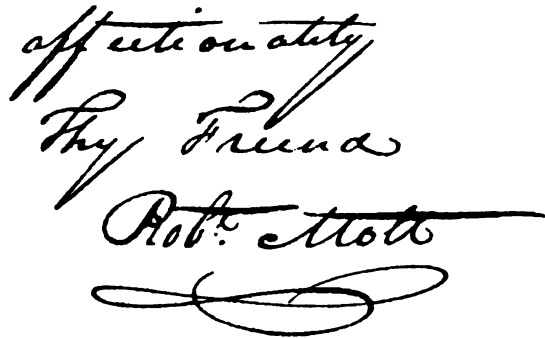 affectionately
Thy Friend
Robt. Mott